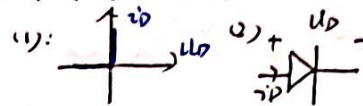 (1): iD uD (2) + uD -
iD